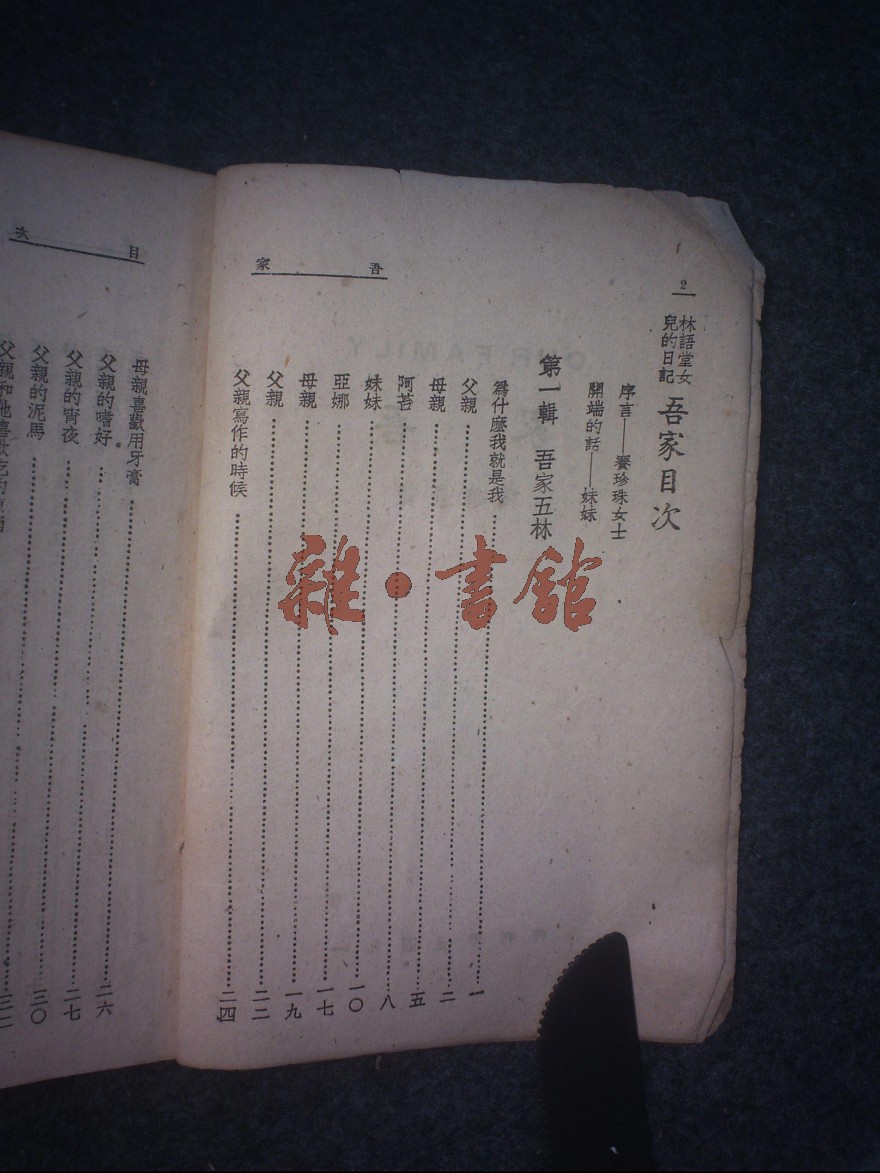 2
吾家
林語堂女
兒的日記
吾家目次
序言——賽珍珠女士
開端的話——妹妹
第一輯 吾家五林
爲什麽我就是我 一
父親 二
母親 五
阿苔 八
妹妹 一〇
亞娜 一七
母親 一九
父親 二二
父親寫作的時候 二四
目次
母親喜歡用牙膏 二六
父親的嗜好 二七
父親的宵夜 三〇
父親的泥馬
雜·書館